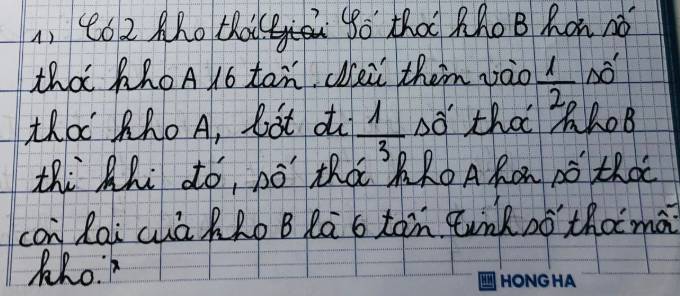 1) Có 2 kho thóc Số thóc kho B hơn số
thóc kho A 16 tấn. Nếu thêm vào 1/2 số
thóc kho A, bớt đi 1/3 số thóc kho B
thì khi đó, số thóc kho A hơn số thóc
còn lại của kho B là 6 tấn. Tính số thóc mỗi
kho?
HONG HA